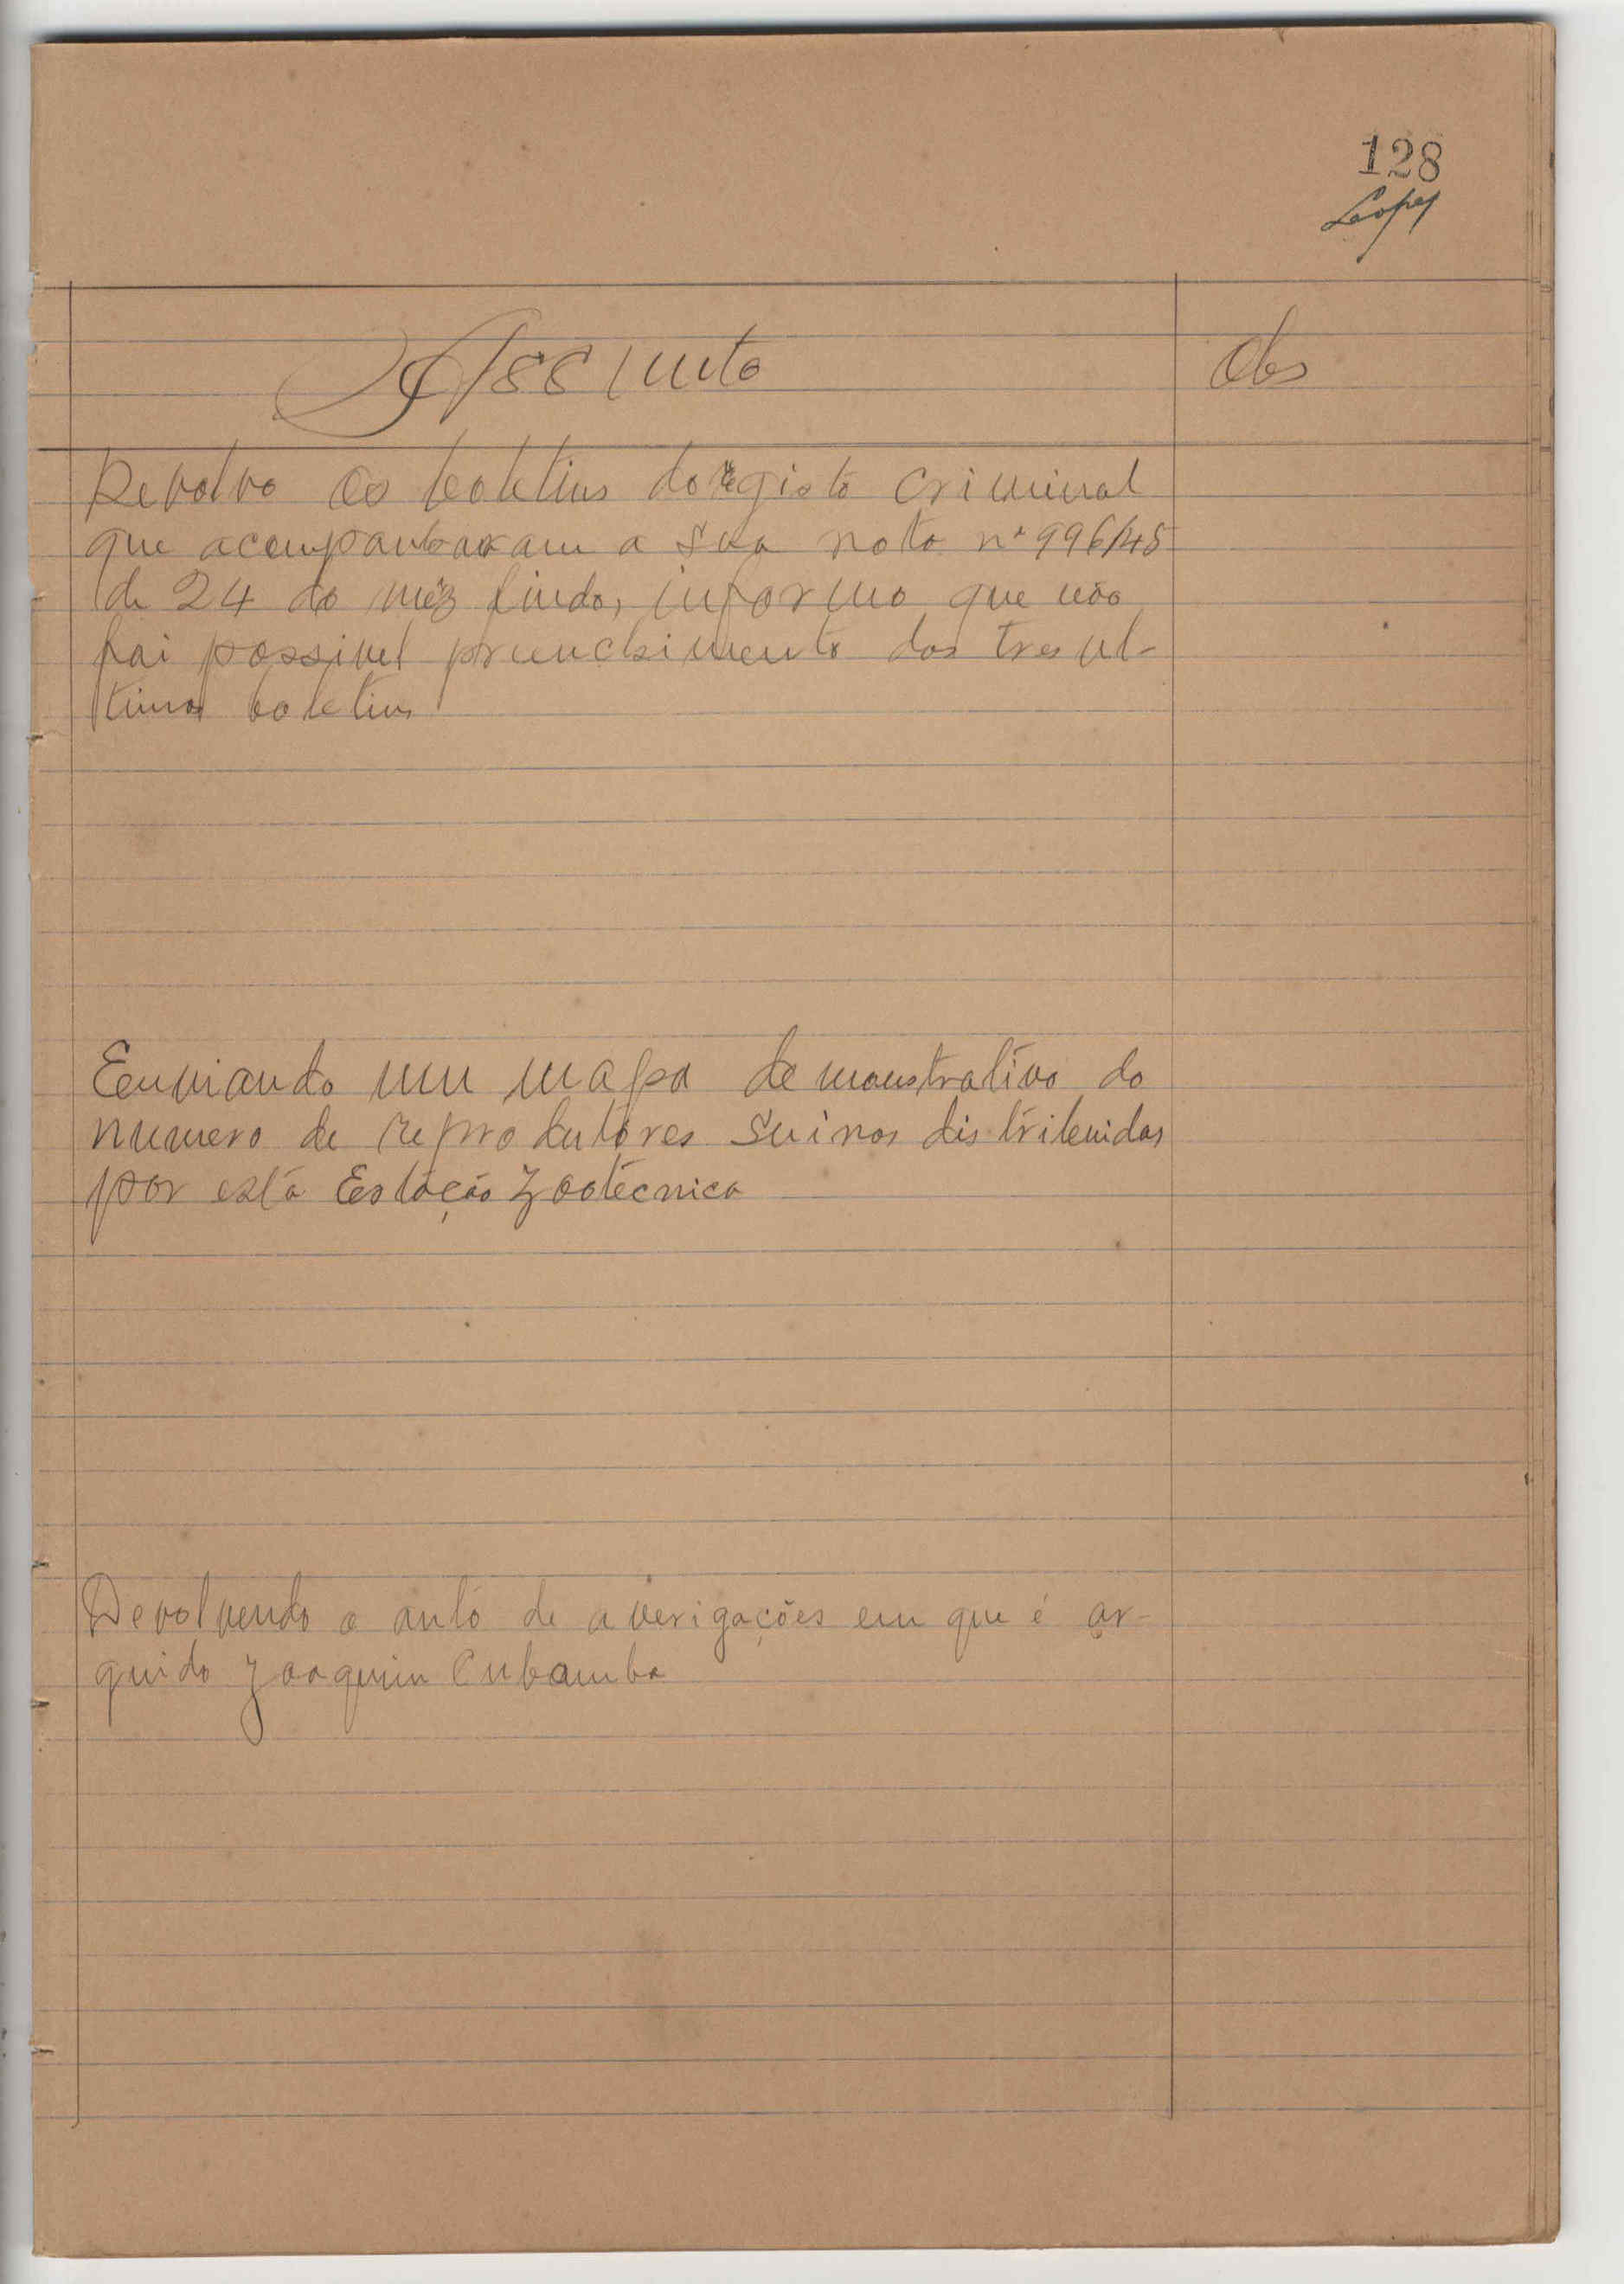 128
Lopes
Assunto
Obs
Devolvo os boletins do registo criminal
que acompanharam a sua nota nº 996/45
de 24 do mês findo, informo que não
foi possivel preenchimento dos tres ul-
timos boletins
Enviando um mapa demonstrativo do
numero de reprodutores suinos distribuidos
por esta Estação Zootécnica
Devolvendo o auto de averigações em que é ar-
guido Joaquim Cubamba